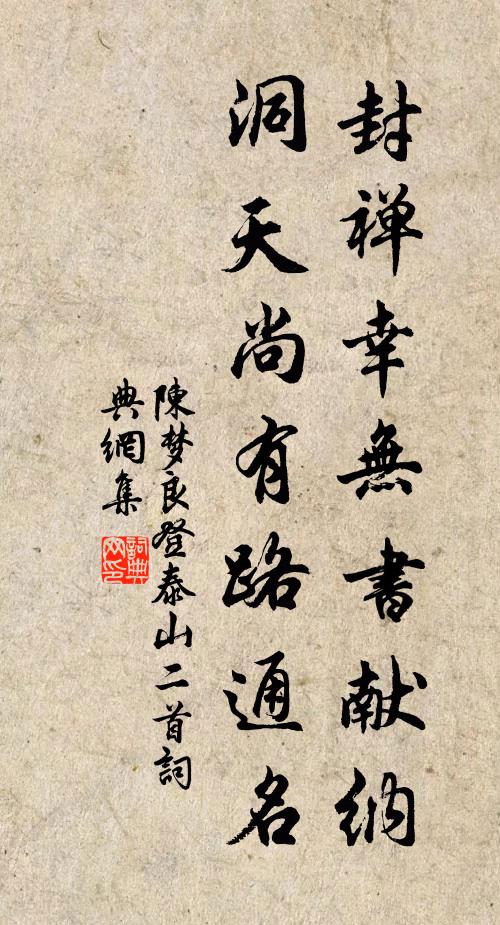 封禅幸無書献纳
洞天尚有路通名
陳梦良登泰山二首詞
典網集
詞典网印